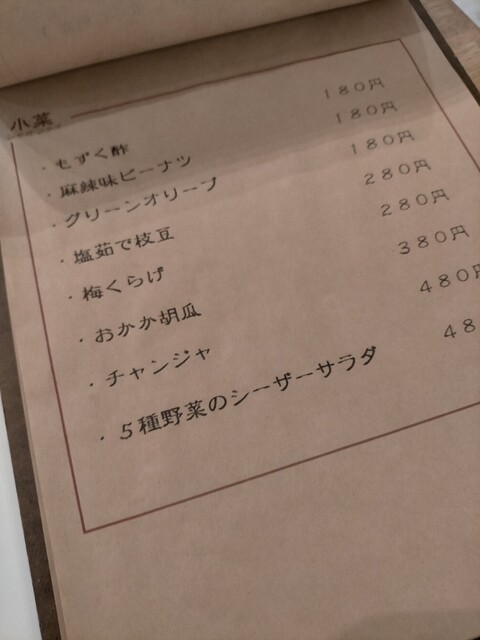 小菜
・もずく酢 180円
・麻辣味ピーナツ 180円
・グリーンオリーブ 180円
・塩茹で枝豆 280円
・梅くらげ 280円
・おかか胡瓜 380円
・チャンジャ 480円
・5種野菜のシーザーサラダ 48